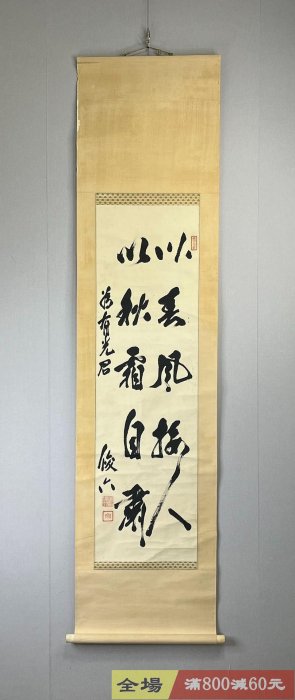 以春風接人
以秋霜自肅
為有光君
俊六
全場
滿800減60元